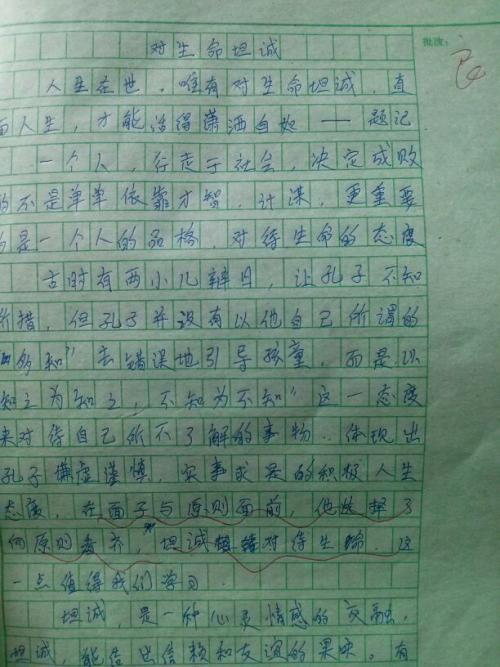 对生命坦诚
批改:
人生在世,唯有对生命坦诚,直
面人生,才能活得潇洒自如——题记
一个人,行走于社会,决定成败
的不是单单依靠才智,计谋,更重要
的是一个人的品格,对待生命的态度.
古时有两小儿辩日,让孔子不知
所措,但孔子并没有以他自己所谓的
多知"去错误地引导孩童,而是以
知之为知之,不知为不知"这一态度
来对待自己所不了解的事物.体现出
孔子谦虚谨慎,实事求是的积极人生
态度,在面子与原则面前,他选择了
向原则看齐,坦诚对待生命.这
一点值得我们学习.
坦诚,是一种心灵情感的交融,
坦诚,能结出信赖和友谊的果实.有